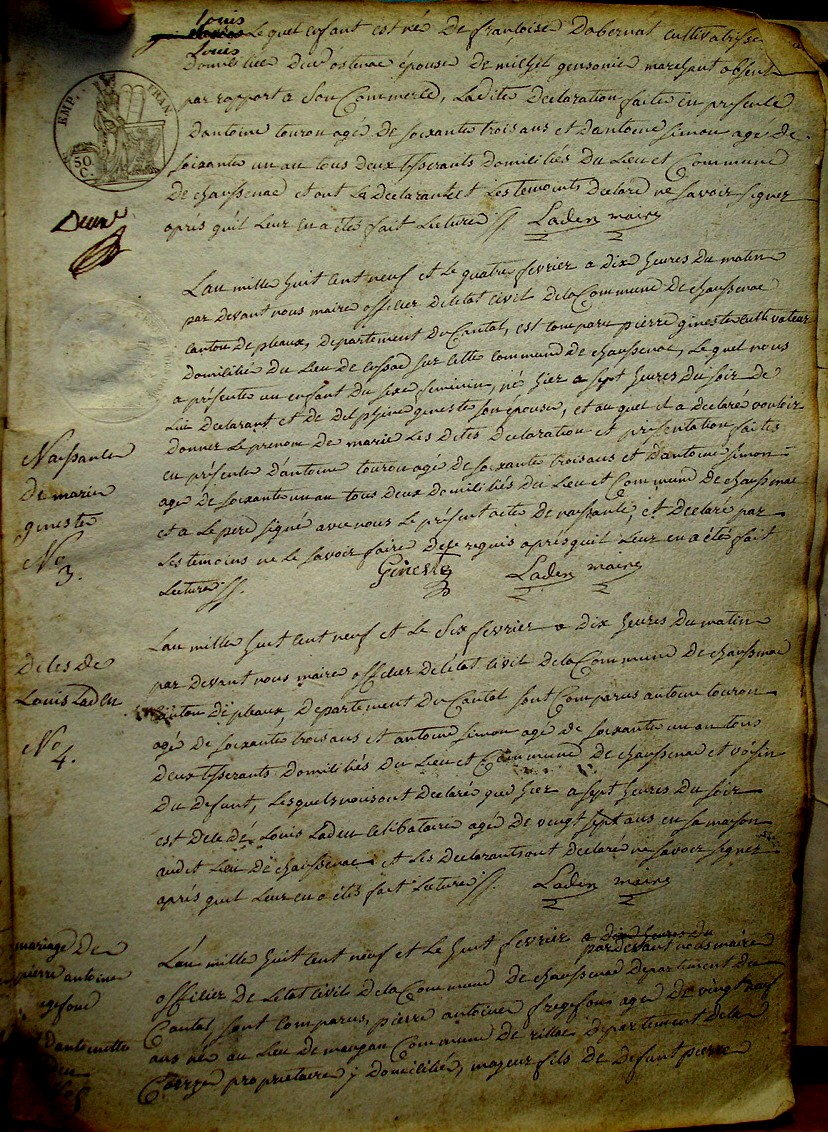 Louis
Louis Lequel enfant est né De françoise Dabernat cultivatrisse
Domiciliée du Vostenac épouse De michel gensonie marchant absent
par raport a Son Commerce, Ladite Declaration faite en presence
Dantoine touron agé De soixante trois ans et Dantoine simon agé de
soixante un an tous deux tisserants Domiciliés Du Lieu et Commune
De chaussenac et ont Le Declarant et Les temoints Declaré ne savoir signer
aprés quil Leur en a étés fait Lecture //. Laden maire
EMP. FRAN.
50 C.
Deux
Lan mille huit cent neuf et Le quatre fevrier a Dix heures Du matin
par devant nous maire officier De létat civil De la Commune De chaussenac
Canton De pleaux, Departement Du Cantal, est comparu pierre gineste cultivateur
Domicilié Du Lieu de cussac sur cette commune De chaussenac, Le quel nous
a présenté un enfant Du sexe feminin, né hier a sept heures Du soir De
Lui Declarant et De Delphine gineste son épouse, et au quel il a déclaré vouloir
Donner Le prenom De marie Les Dites Declaration et présentation faites
en présence Dantoine touron agé De soixante trois ans et Dantoine simon
agé De soixante un an tous Deux Domiciliés Du Lieu et Commune De chaussenac
et a Le pere signé avec nous Le présent acte De naissance, et Declaré par
Les temoins ne Le savoir faire De ce requis aprés quil Leur en a étés fait
Lecture //. Gineste Laden maire
Naissance
De marie
gineste
No
3.
Lan mille huit cent neuf et Le Six fevrier a Dix heures Du matin
par devant nous maire officier De létat civil De la Commune De chaussenac
Canton De pleaux, Departement Du Cantal sont Comparus antoine touron
agé De soixante trois ans et antoine simon agé De soixante un an tous
Deux tisserants Domiciliés Du Lieu et Commune De chaussenac et voisin
Du Defunt, Lesquels nous ont Declaré que hier a sept heures Du soir
est Decedé Louis Laden celibataire agé De vingt sept ans en sa maison
au dit Lieu De chaussenac et Les Declarants ont Declaré ne savoir signer
aprés quil Leur en a étés fait Lecture //. Laden maire
Déces de
Louis Laden
No
4.
Lan mille huit cent neuf et Le huit fevrier a dix heures Du
par devant nous maire
officier De Létat civil De la Commune De chaussenac Departement Du
Cantal sont Comparus, pierre antoine fregefon agé De vingt neuf
ans née au Lieu De Commune De rillac Departement De la
Correze proprietaire y Domicilié, majeur fils De Defunt pierre
mariage De
pierre antoine
Dantoinette